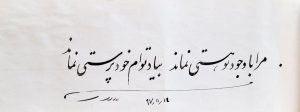 مرا با وجود تو هستی نماند بیاد توام خودپرستی نماند
۹۷,۱۱,۱۶